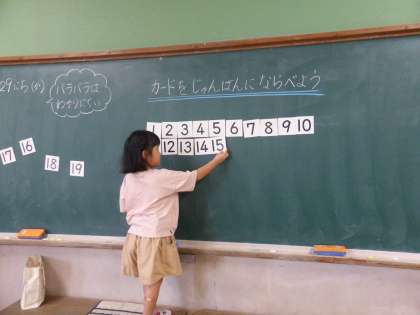 29にち(か)
バラバラは
わかりにくい
カードをじゅんばんにならべよう
1 2 3 4 5 6 7 8 9 10
12 13 14 15
17 16
18 19